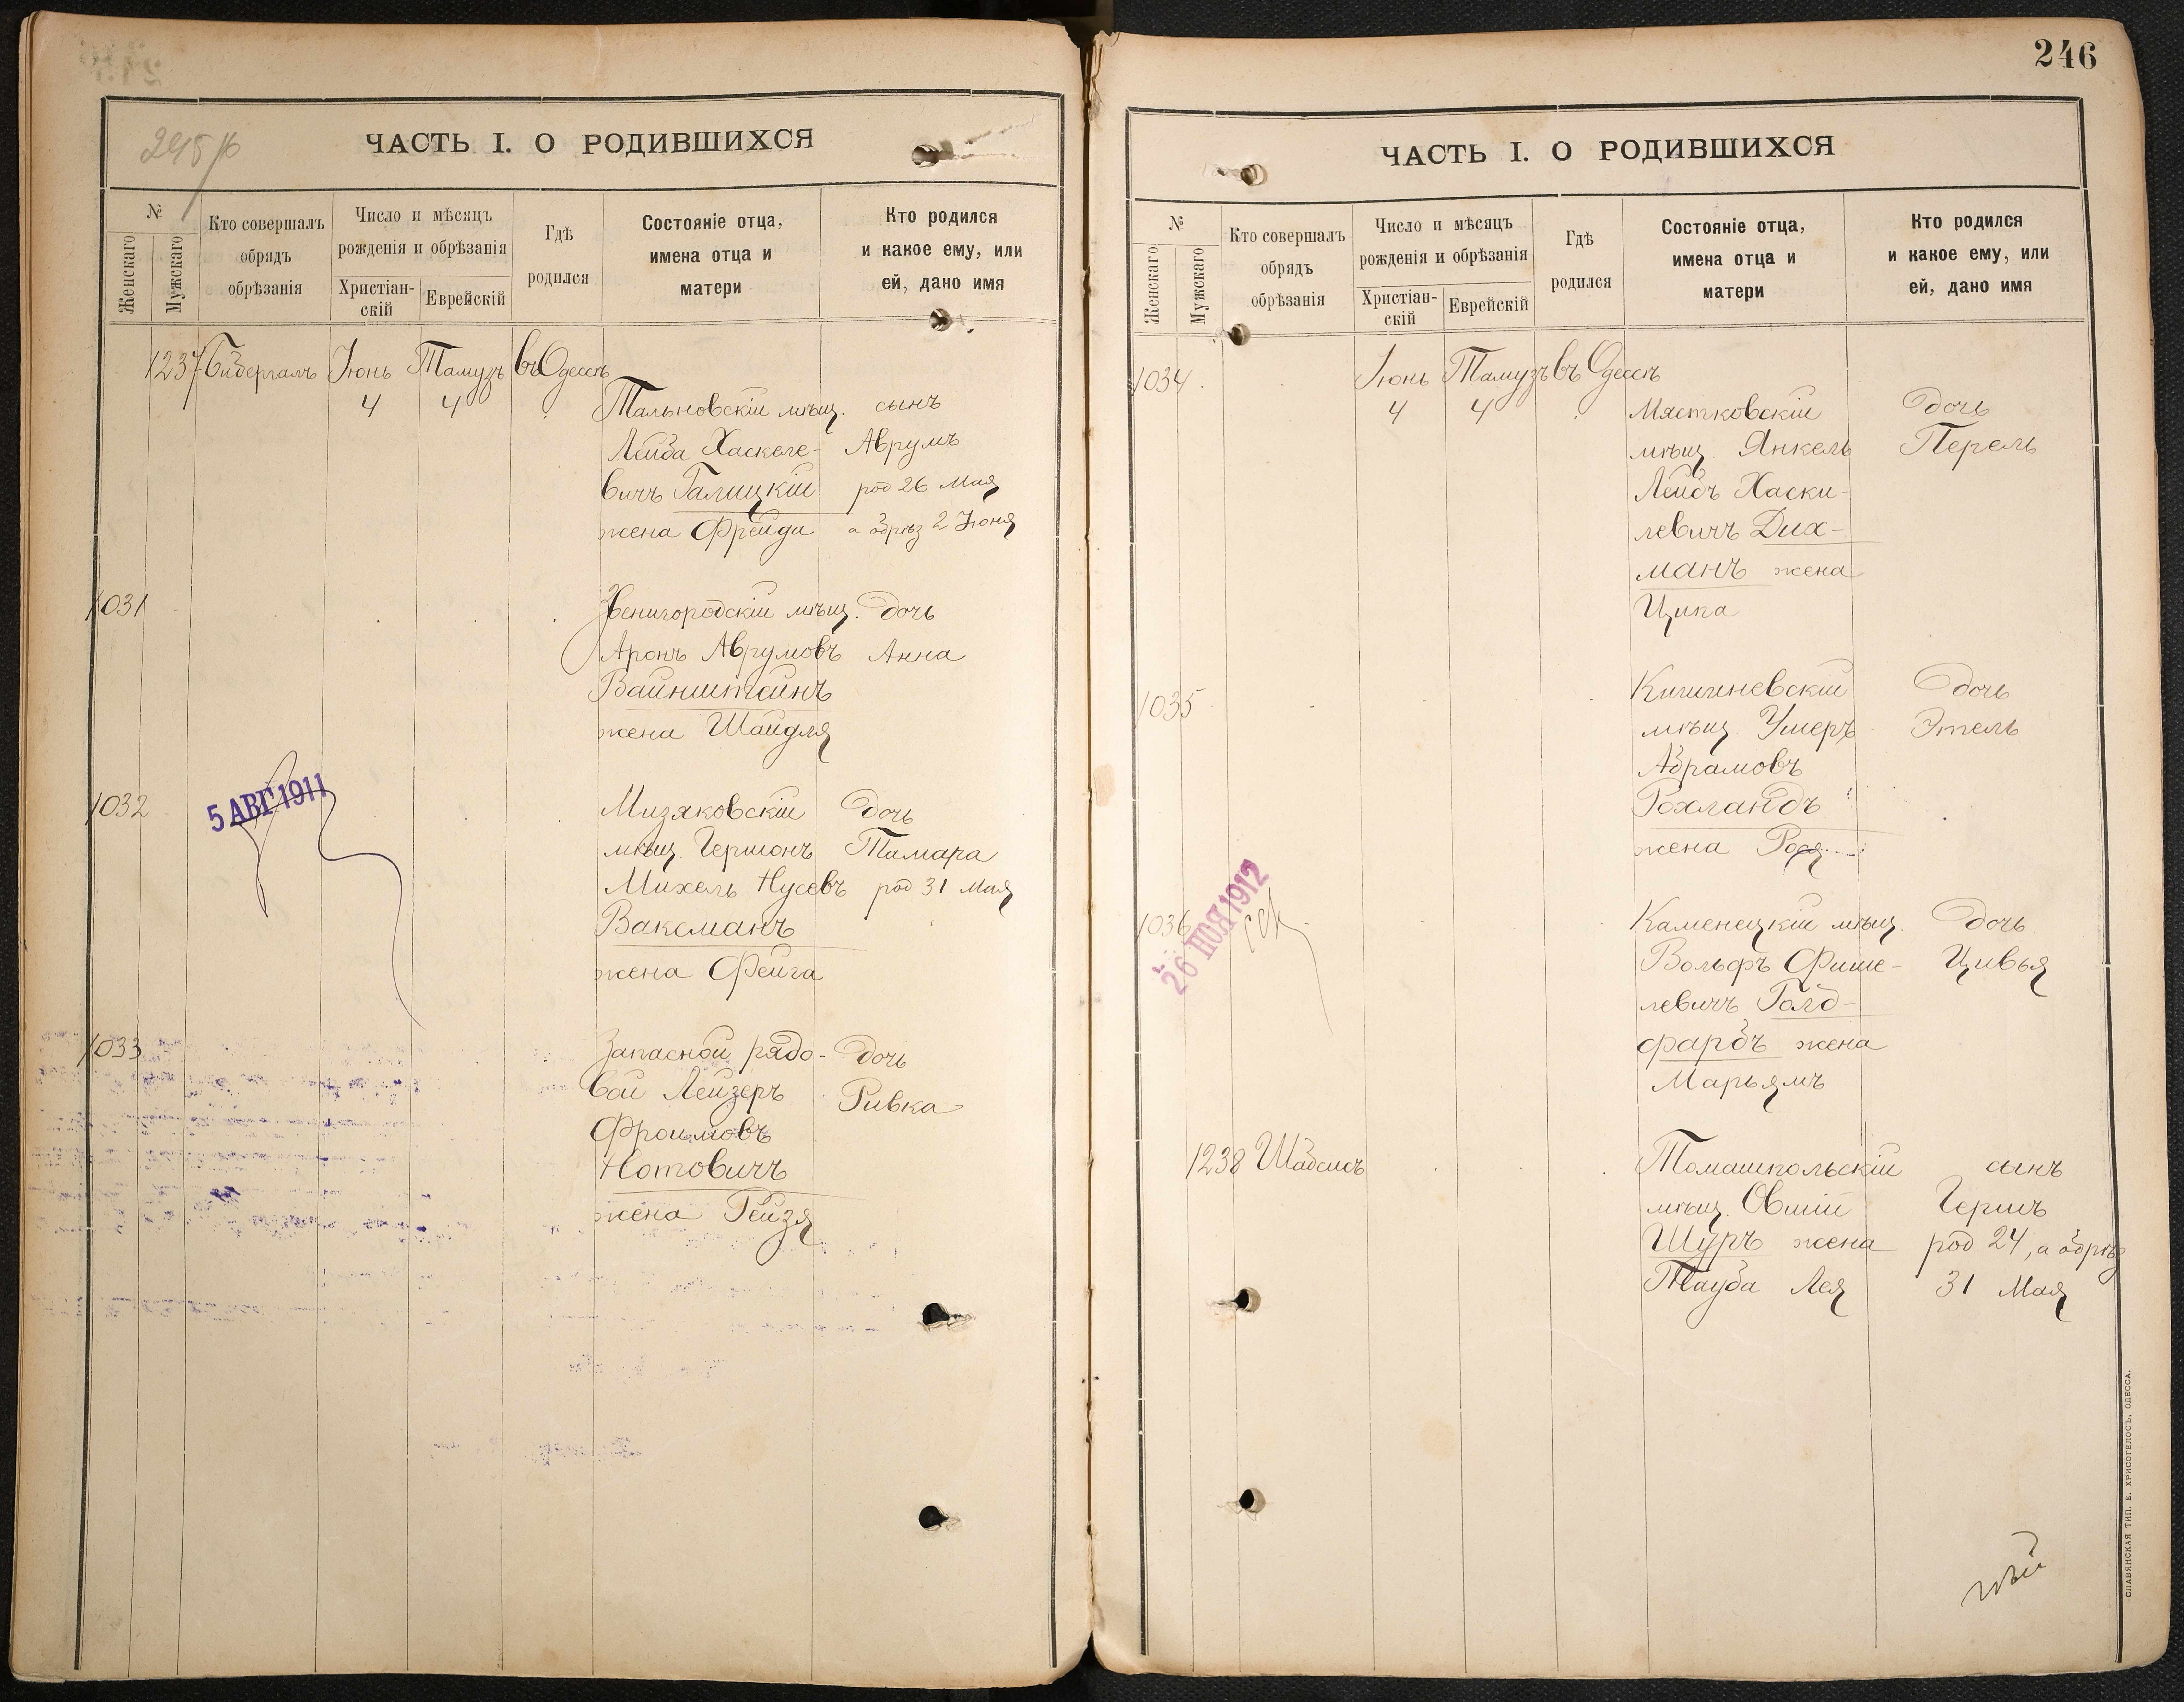 245 об
ЧАСТЬ I. О РОДИВШИХСЯ
№
Женскаго
Мужскаго
Кто совершалъ
обрядъ
обрѣзанія
Число и мѣсяцъ
рожденія и обрѣзанія
Христіан-
скій
Еврейскій
Гдѣ
родился
Состояніе отца,
имена отца и
матери
Кто родился
и какое ему, или
ей, дано имя
1237 Бидергалъ Іюнь Тамузъ въ Одессѣ
4 4 Тальновскій мѣщ. сынъ
Лейба Хаскеле- Аврумъ
вичъ Галицкій род 26 Мая
жена Фрейда а обрѣз 2 Іюня
1031 Звенигородскій мѣщ. дочь
Аронъ Аврумовъ Анна
Вайнштейнъ
жена Шайдля
1032 5 АВГ 1911 Мизяковскій дочь
мѣщ. Гершонъ Тамара
Михель Нусевъ род 31 Мая
Ваксманъ
жена Фейга
1033 Запасной рядо- дочь
вой Лейзеръ Ривка
Фроимовъ
Нотовичъ
жена Рейзя
246
ЧАСТЬ I. О РОДИВШИХСЯ
№
Женскаго
Мужскаго
Кто совершалъ
обрядъ
обрѣзанія
Число и мѣсяцъ
рожденія и обрѣзанія
Христіан-
скій
Еврейскій
Гдѣ
родился
Состояніе отца,
имена отца и
матери
Кто родился
и какое ему, или
ей, дано имя
1034 Іюнь Тамузъ въ Одессѣ
4 4 Мястковскій дочь
мѣщ. Янкель Перель
Лейбъ Хаски-
левичъ Дих-
манъ жена
Ципа
1035 Кишиневскій дочь
мѣщ. Ушеръ Этель
Абрамовъ
Рохландъ
жена Рося
1036 26 НОЯ 1912 Каменецкій мѣщ. дочь
Вольфъ Фише- Цивья
левичъ Голд-
фарбъ жена
Марьямъ
1238 Шабсисъ Томашпольскій сынъ
мѣщ. Овшій Гершъ
Шуръ жена род 24, а обрѣз
Тауба Лея 31 Мая
СЛАВЯНСКАЯ ТИП. Е. ХРИСОГЕЛОСЪ, ОДЕССА.